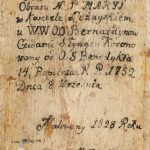 Obrazu N. P. MARYI
w Kosciele Leżayskiem
u WWOO. Bernardynow
Cudami Słynący Korono
wany od O S Benedykta
14, Papieża. R. P. 1752
Dnia 8 Września
Malowany 1928 Roku